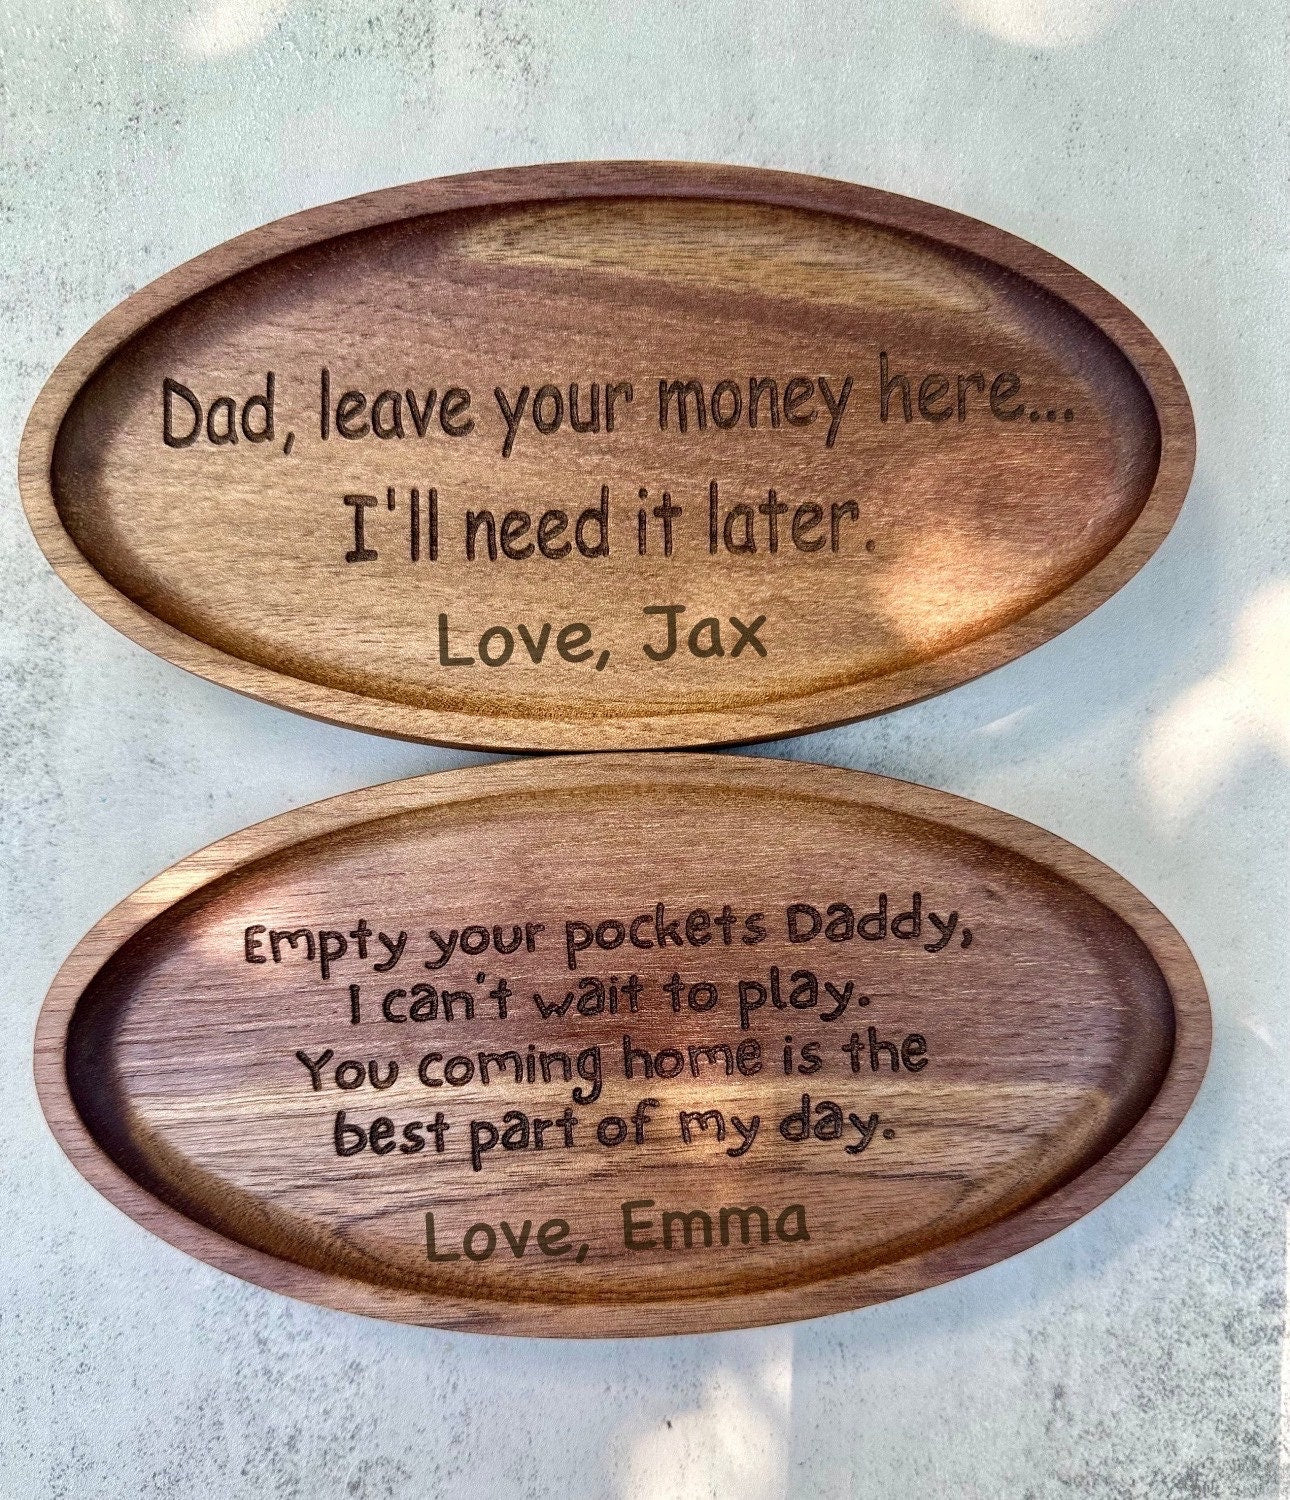 Dad, leave your money here...
I'll need it later.
Love, Jax
Empty your pockets Daddy,
I can't wait to play.
You coming home is the
best part of my day.
Love, Emma